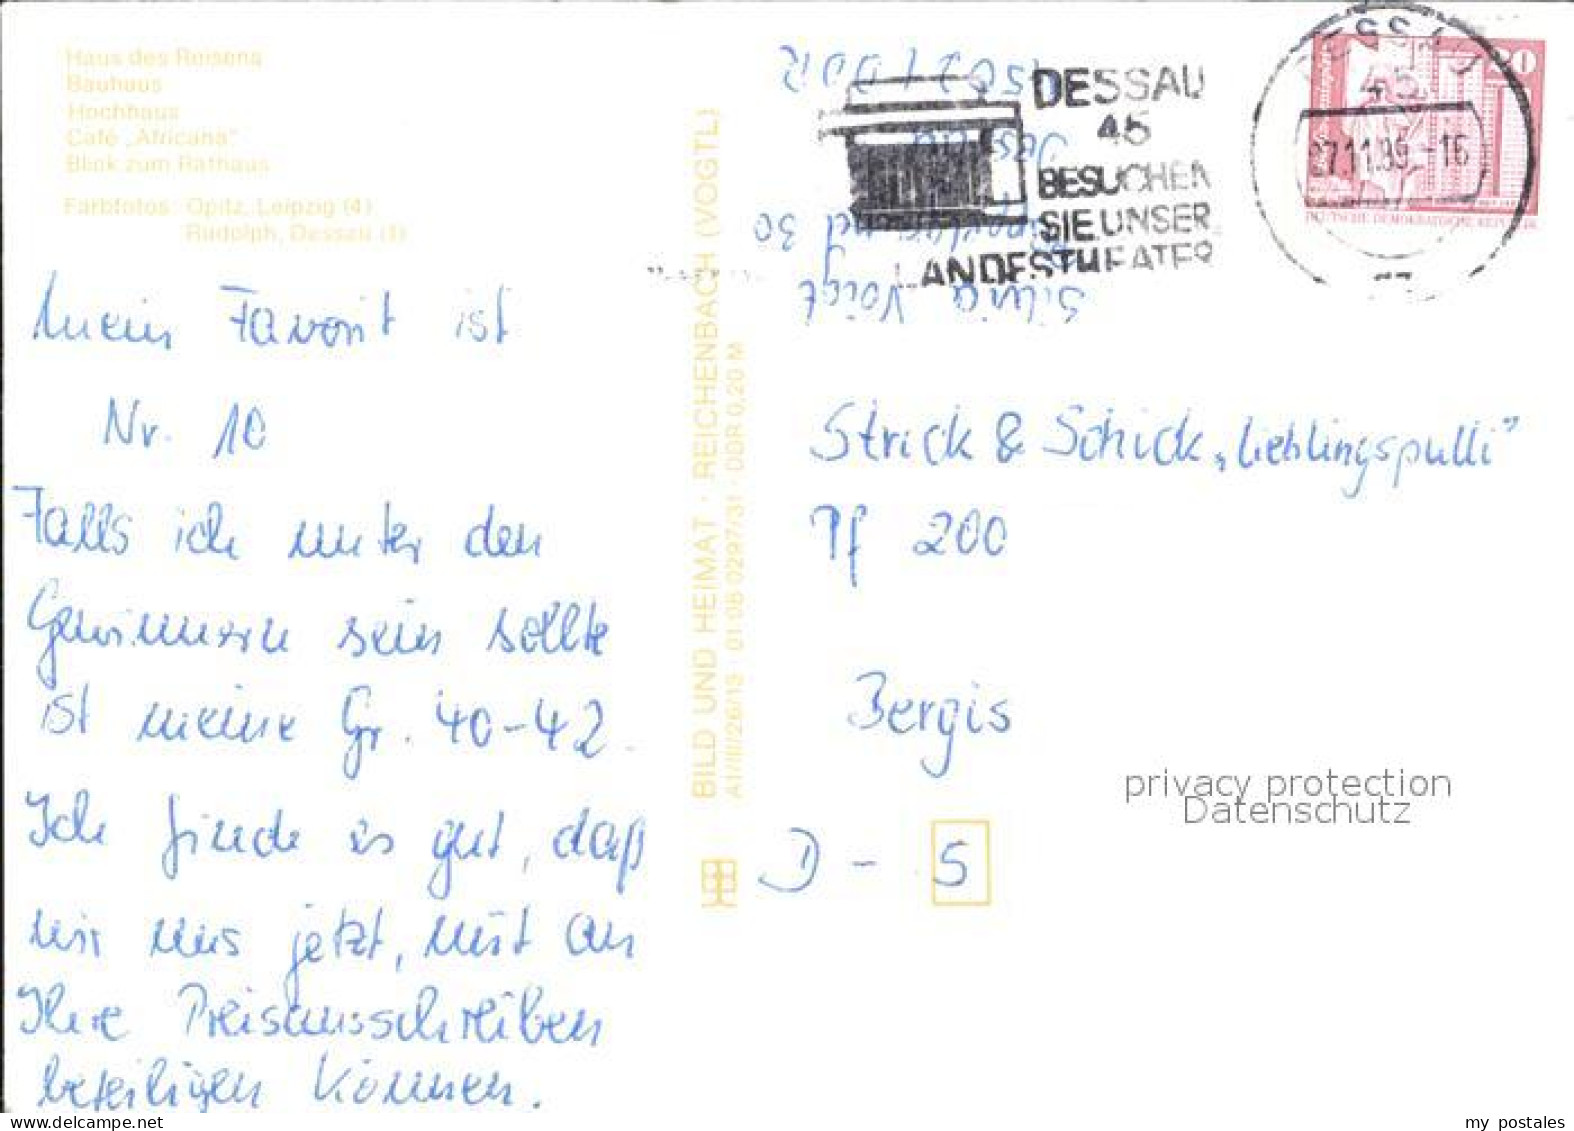 Haus des Reisens
Bauhaus
Hochhaus
Café „Africana"
Blick zum Rathaus
Farbfotos: Opitz, Leipzig (4)
Rudolph, Dessau (1)
Mein Favorit ist
Nr. 10
Falls ich unter den
Gewinnern sein sollte
ist meine Gr. 40-42.
Ich finde es gut, daß
wir uns jetzt, mit an
Ihre Preisausschreiben
beteiligen können.
BILD UND HEIMAT · REICHENBACH (VOGTL)
A1/III/26/13 · 01 08 0297/31 · DDR 0,20 M
Silvia Voigt
30
Dessau
DDR
DESSAU
45
BESUCHEN
SIE UNSER
LANDESTHEATER
DESSAU
45
-16
20
DEUTSCHE DEMOKRATISCHE REPUBLIK
Strick & Schick „Lieblingspulli"
Pf 200
Bergis
D - 5
privacy protection
Datenschutz
www.delcampe.net
my postales